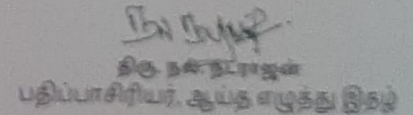 திரு நல். நடராஜன்
பதிப்பாசிரியர், ஆய்த எழுத்து இதழ்